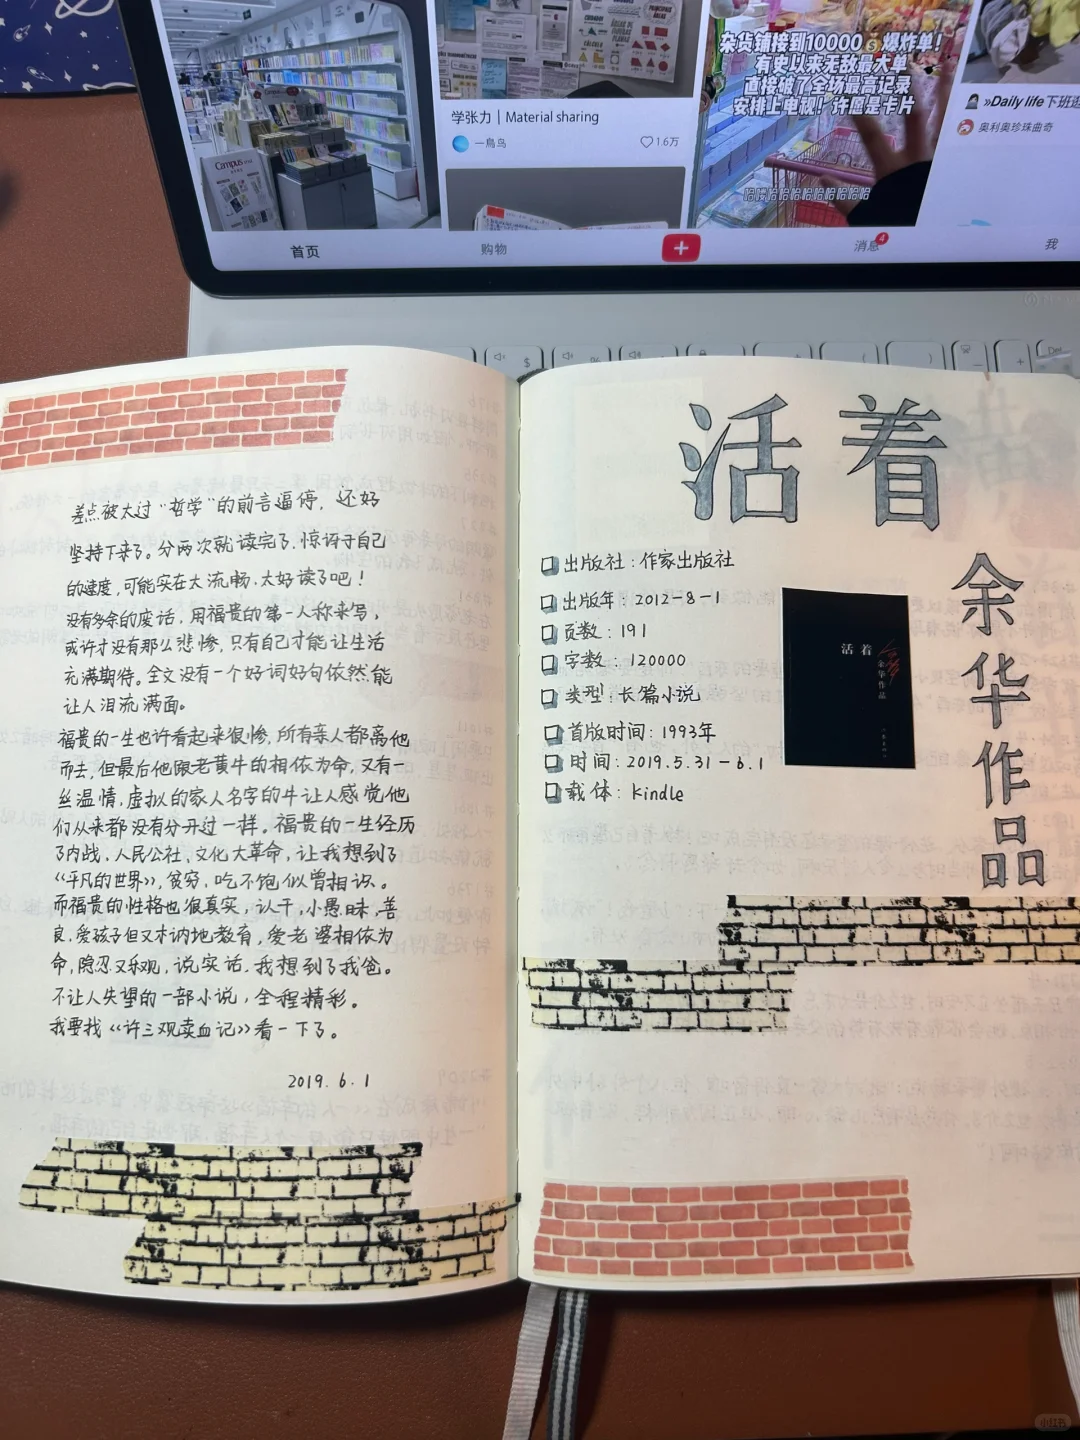 学张力｜Material sharing
一鳥鸟
1.6万
杂货铺接到10000💰爆炸单！
有史以来无敌最大单
直接破了全场最高记录
安排上电视！许愿是卡片
»Daily life下班逛
奥利奥珍珠曲奇
Campus
首页
购物
+
消息
4
我
差点被太过“哲学”的前言逼停，还好
坚持下来了。分两次就读完了，惊讶于自己
的速度，可能实在太流畅，太好读了吧！
没有多余的废话，用福贵的第一人称来写，
或许才没有那么悲惨，只有自己才能让生活
充满期待。全文没有一个好词好句依然能
让人泪流满面。
福贵的一生也许看起来很惨，所有亲人都离他
而去，但最后他跟老黄牛的相依为命，又有一
丝温情，虚拟的家人名字的牛让人感觉他
们从来都没有分开过一样。福贵的一生经历
了内战，人民公社，文化大革命，让我想到了
《平凡的世界》，贫穷，吃不饱似曾相识。
而福贵的性格也很真实，认干，小愚昧，善
良，爱孩子但又木讷地教育，爱老婆相依为
命，隐忍又乐观，说实话，我想到了我爸。
不让人失望的一部小说，全程精彩。
我要找《许三观卖血记》看一下了。
2019.6.1
活着
余华作品
出版社：作家出版社
出版年：2012-8-1
页数：191
字数：120000
类型：长篇小说
首版时间：1993年
时间：2019.5.31-6.1
载体：Kindle
活着
余华作品
小红书